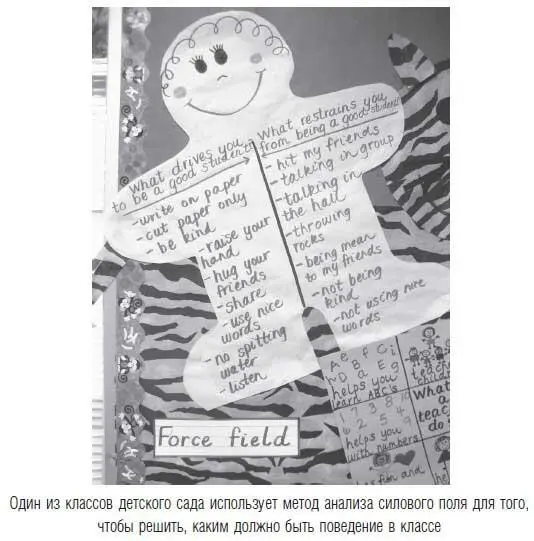 What drives you
to be a good student?
-write on paper
-cut paper only
-be kind
-raise your
hand
-hug your
friends
-share
-use nice
words
-no spitting
water
-listen
What restrains you
from being a good student?
-hit my friends
-talking in group
-talking in
the hall
-throwing
rocks
-being mean
to my friends
-not being
kind
-not using nice
words
Force field
helps you
learn ABC's
helps you
with numbers
What
Один из классов детского сада использует метод анализа силового поля для того,
чтобы решить, каким должно быть поведение в классе